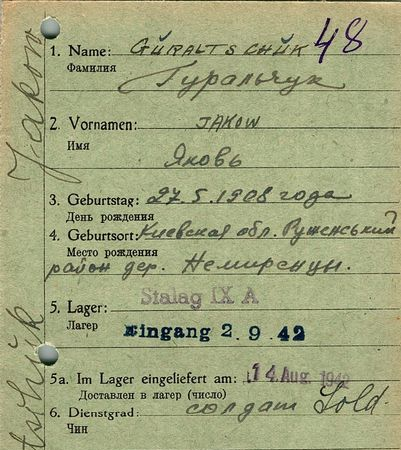 48
1. Name: GŬRALTSCHŬK
Фамилия Гуральчук
2. Vornamen: JAKOW
Имя Яковь
3. Geburtstag: 27.5.1908 года
День рождения
4. Geburtsort: Киевская обл. Руженський
Место рождения
район дер. Немиренцы.
5. Lager: Stalag IX A
Лагер Eingang 2.9.42
5a. Im Lager eingeliefert am: 14 Aug. 1942
Доставлен в лагер (число)
6. Dienstgrad: солдат Sold.
Чин
Jakow
tschŭk